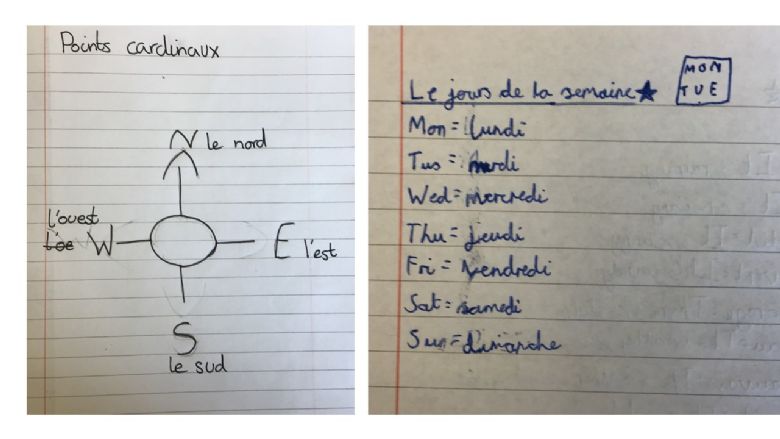 Points cardinaux
N le nord
l'ouest
W
E l'est
S
le sud
Le jours de la semaine
MON
TUE
Mon = lundi
Tus = mardi
Wed = mercredi
Thu = jeudi
Fri = vendredi
Sat = samedi
Sun = dimanche